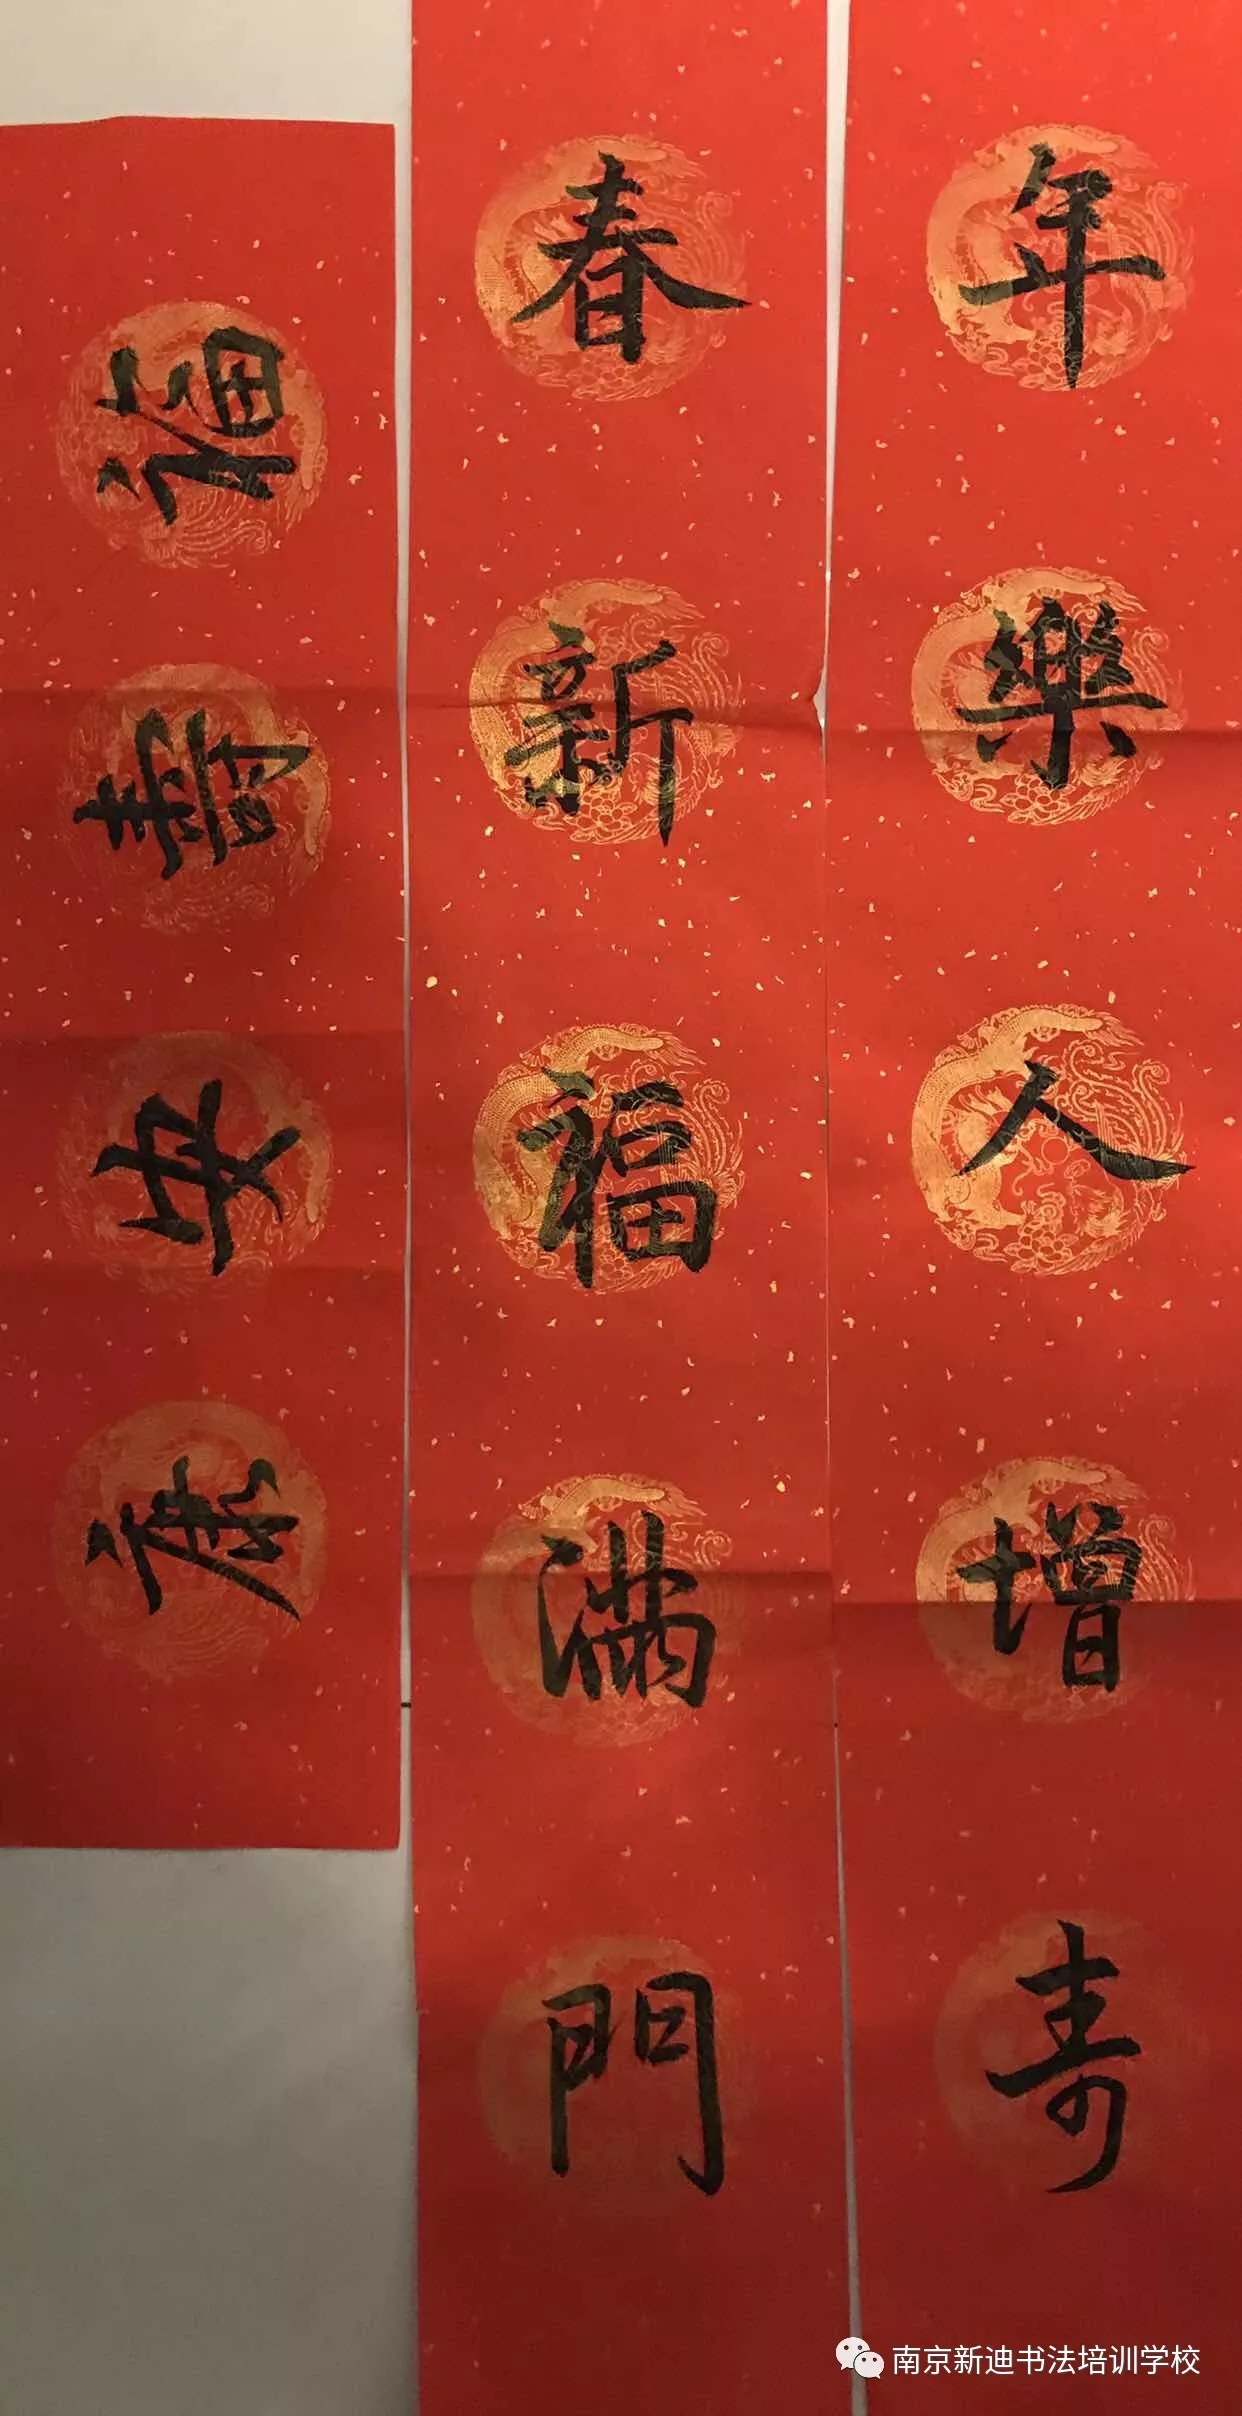 年樂人增寿
春新福滿門
福壽安康
南京新迪书法培训学校